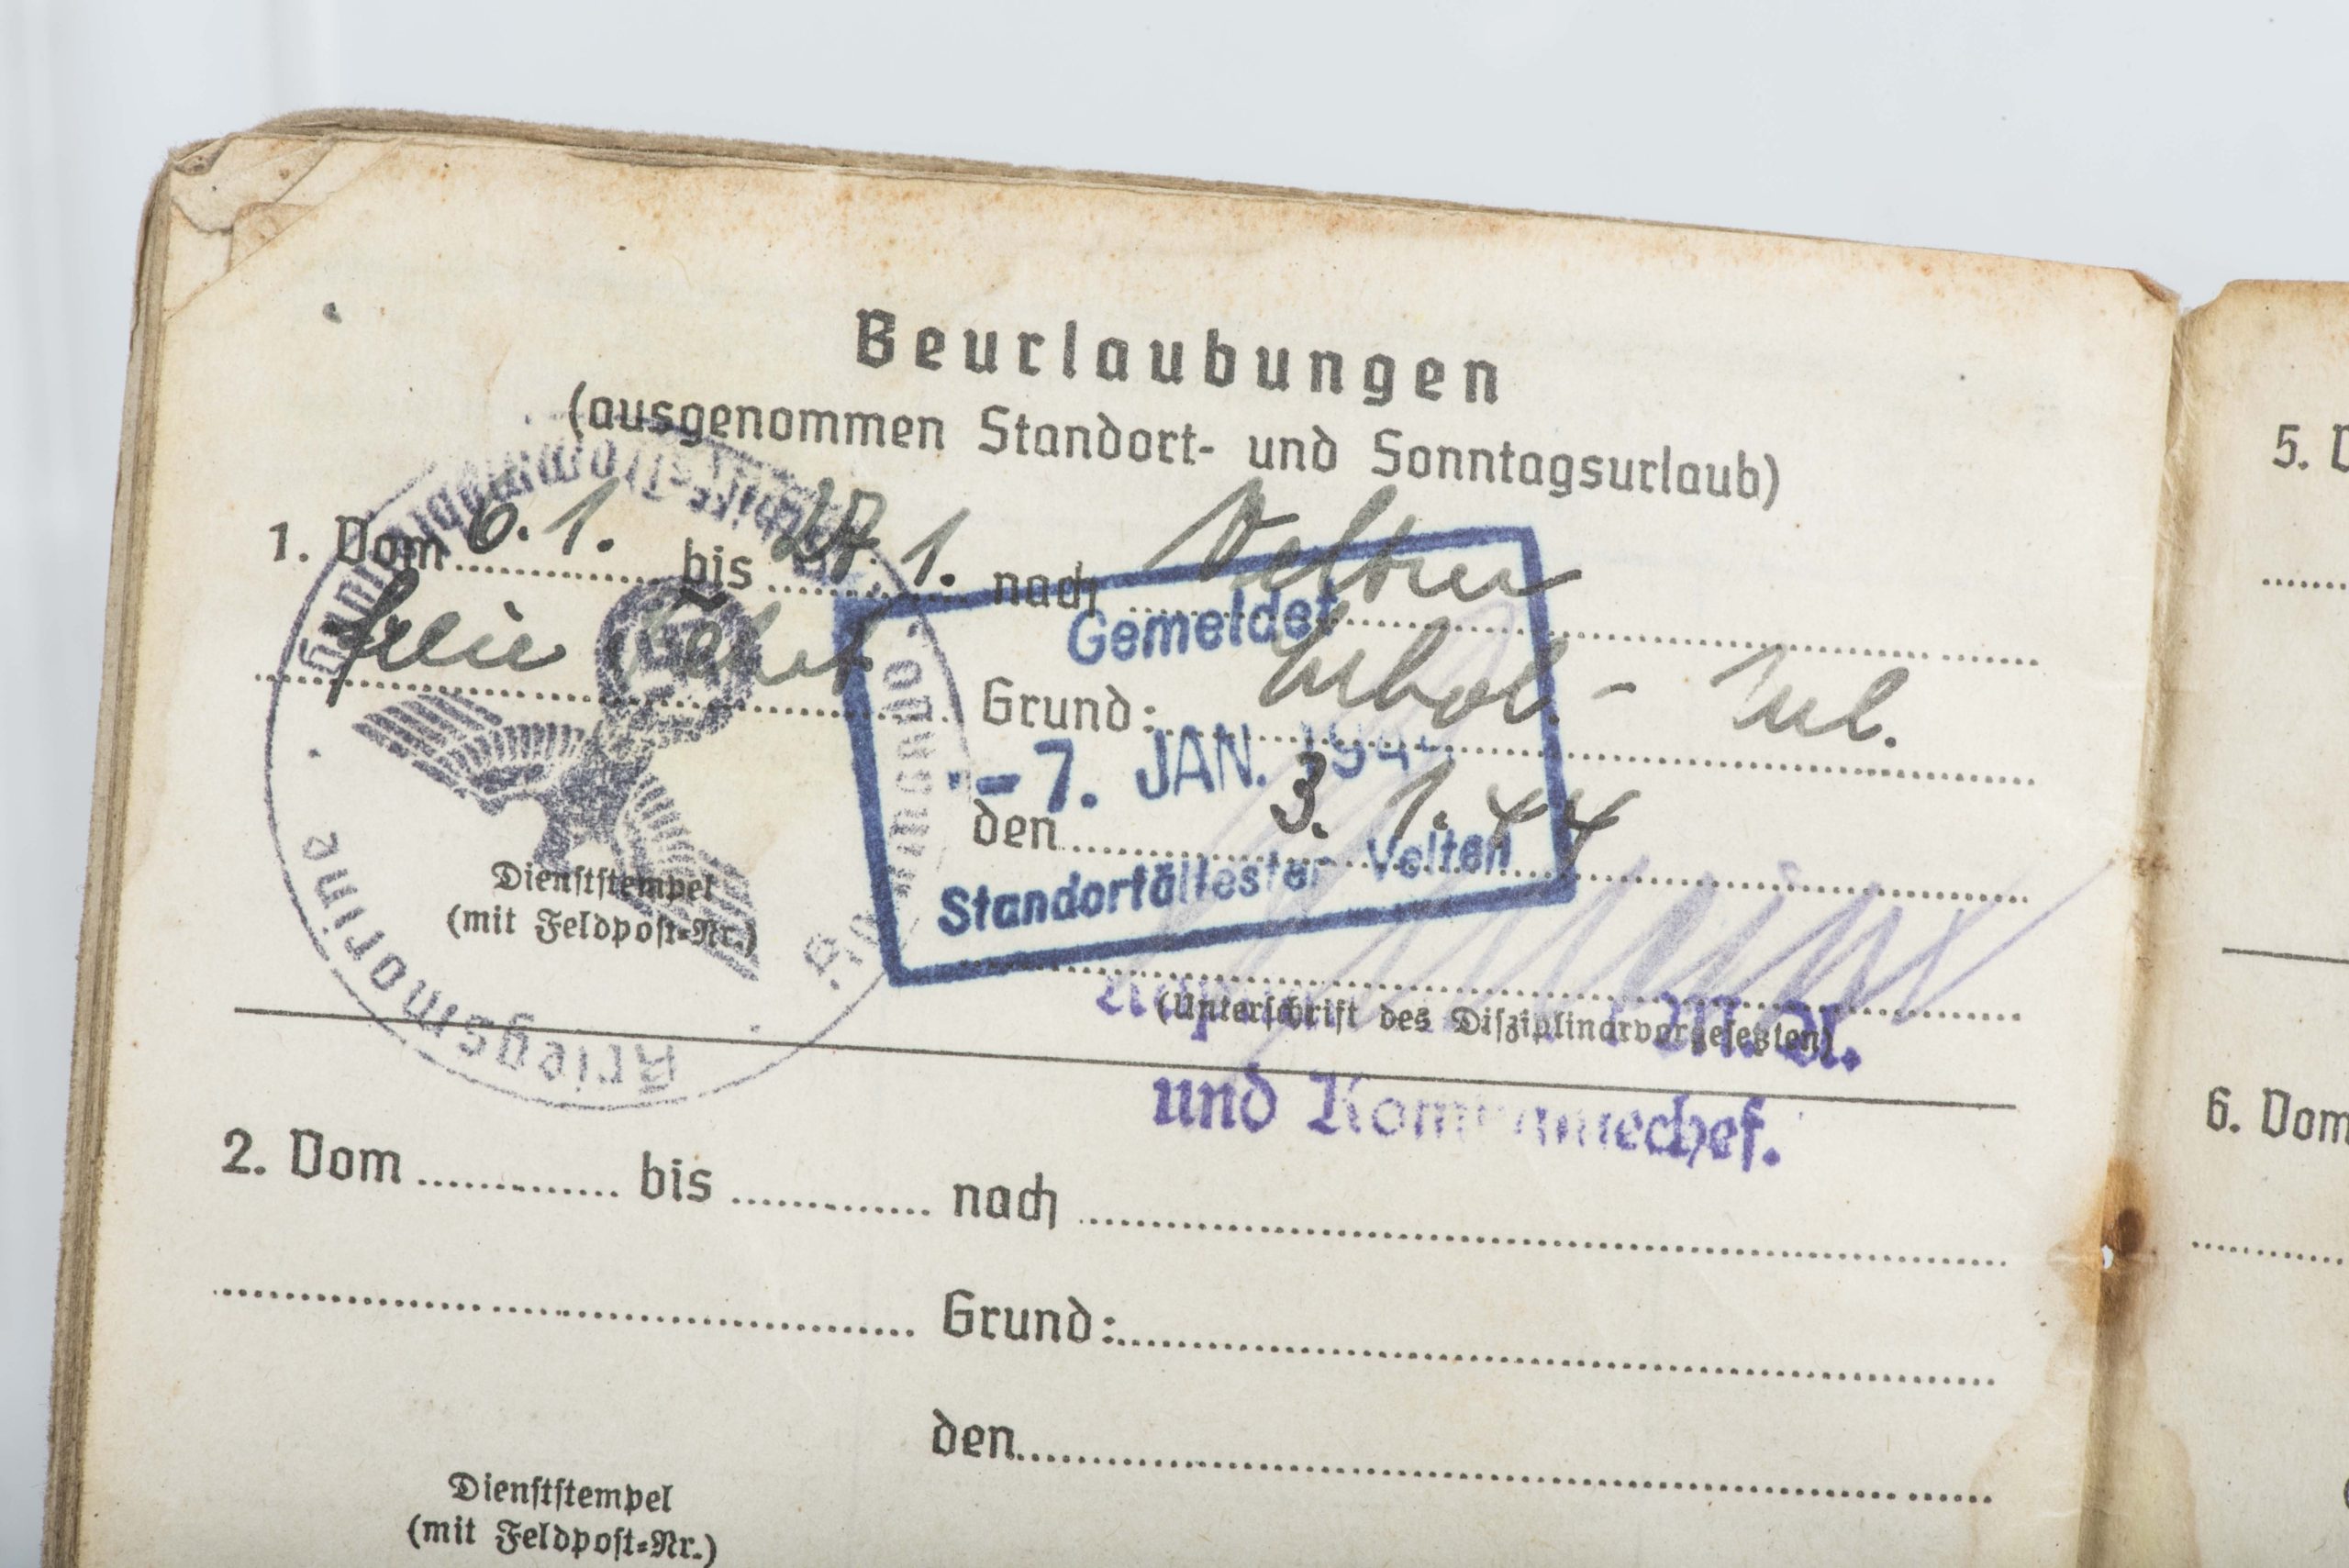 Beurlaubungen
(ausgenommen Standort- und Sonntagsurlaub)
1. Vom 6. 1. bis 27. 1. nach Velten
freie Fahrt
Gemeldet
Grund: Erhol. - Url.
-7. JAN. 1944
den 3. 1. 44
Standortältester Velten
Dienststempel
(mit Feldpost-Nr.)
Kriegsmarine
(Unterschrift des Disziplinarvorgesetzten)
M. A.
und Kompaniechef.
2. Vom bis nach
Grund:
den
Dienststempel
(mit Feldpost-Nr.)
5.
6. Vom